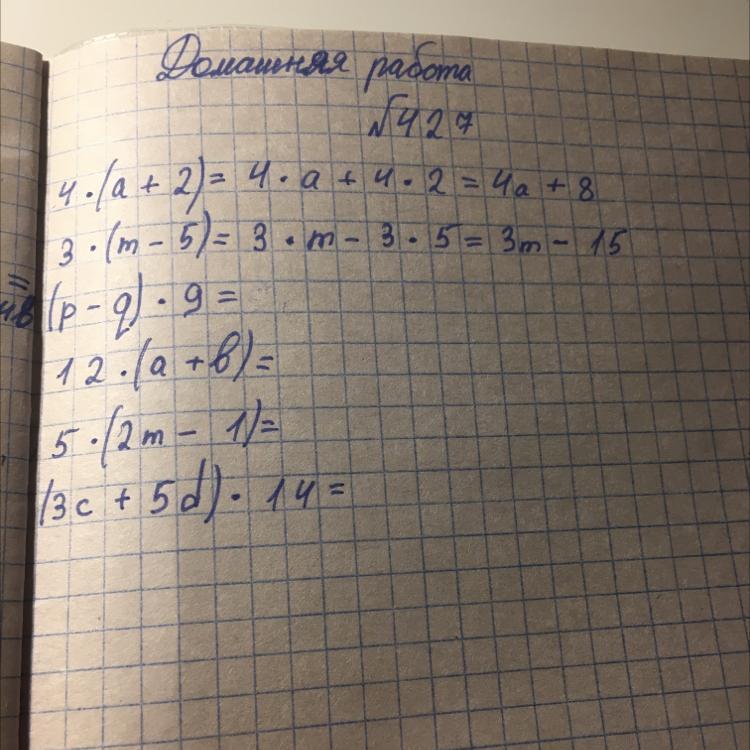 Домашняя работа
№427
4·(a + 2) = 4·a + 4·2 = 4a + 8
3·(m - 5) = 3·m - 3·5 = 3m - 15
=
(p - q)·9 =
12·(a + b) =
5·(2m - 1) =
(3c + 5d)·14 =